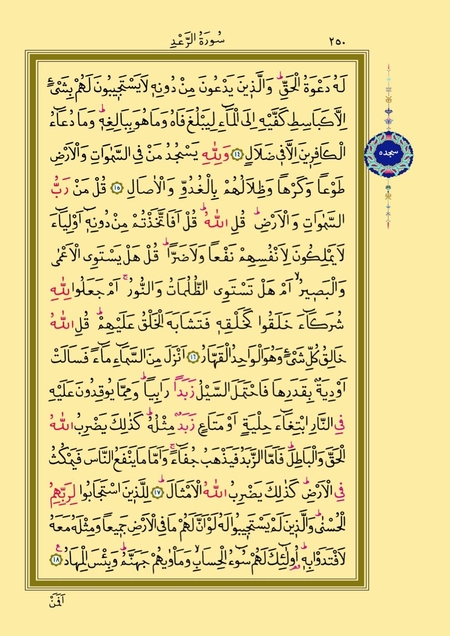 ٢٥٠
سُورَةُ الرَّعْدِ
لَهُ دَعْوَةُ الْحَقِّ وَالَّذ۪ينَ يَدْعُونَ مِنْ دُونِه۪ لَا يَسْتَج۪يبُونَ لَهُمْ بِشَيْءٍ
اِلَّا كَبَاسِطِ كَفَّيْهِ اِلَى الْمَٓاءِ لِيَبْلُغَ فَاهُ وَمَا هُوَ بِبَالِغِه۪ وَمَا دُعَٓاءُ
الْكَافِر۪ينَ اِلَّا ف۪ي ضَلَالٍ ﴿١٤﴾ وَلِلّٰهِ يَسْجُدُ مَنْ فِي السَّمٰوَاتِ وَالْاَرْضِ
طَوْعاً وَكَرْهاً وَظِلَالُهُمْ بِالْغُدُوِّ وَالْاٰصَالِ ﴿١٥﴾ قُلْ مَنْ رَبُّ
السَّمٰوَاتِ وَالْاَرْضِۜ قُلِ اللّٰهُۜ قُلْ اَفَاتَّخَذْتُمْ مِنْ دُونِه۪ٓ اَوْلِيَٓاءَ
لَا يَمْلِكُونَ لِاَنْفُسِهِمْ نَفْعاً وَلَا ضَراًّۜ قُلْ هَلْ يَسْتَوِي الْاَعْمٰى
وَالْبَص۪يرُۙ اَمْ هَلْ تَسْتَوِي الظُّلُمَاتُ وَالنُّورُۚ اَمْ جَعَلُوا لِلّٰهِ
شُرَكَٓاءَ خَلَقُوا كَخَلْقِه۪ فَتَشَابَهَ الْخَلْقُ عَلَيْهِمْۜ قُلِ اللّٰهُ
خَالِقُ كُلِّ شَيْءٍ وَهُوَ الْوَاحِدُ الْقَهَّارُ ﴿١٦﴾ اَنْزَلَ مِنَ السَّمَٓاءِ مَٓاءً فَسَالَتْ
اَوْدِيَةٌ بِقَدَرِهَا فَاحْتَمَلَ السَّيْلُ زَبَداً رَابِياًۜ وَمِمَّا يُوقِدُونَ عَلَيْهِ
فِي النَّارِ ابْتِغَٓاءَ حِلْيَةٍ اَوْ مَتَاعٍ زَبَدٌ مِثْلُهُۜ كَذٰلِكَ يَضْرِبُ اللّٰهُ
الْحَقَّ وَالْبَاطِلَۜ فَاَمَّا الزَّبَدُ فَيَذْهَبُ جُفَٓاءًۚ وَاَمَّا مَا يَنْفَعُ النَّاسَ فَيَمْكُثُ
فِي الْاَرْضِۜ كَذٰلِكَ يَضْرِبُ اللّٰهُ الْاَمْثَالَۜ ﴿١٧﴾ لِلَّذ۪ينَ اسْتَجَابُوا لِرَبِّهِمُ
الْحُسْنٰىۜ وَالَّذ۪ينَ لَمْ يَسْتَج۪يبُوا لَهُ لَوْ اَنَّ لَهُمْ مَا فِي الْاَرْضِ جَم۪يعاً وَمِثْلَهُ مَعَهُ
لَافْتَدَوْا بِه۪ۜ اُو۬لٰٓئِكَ لَهُمْ سُٓوءُ الْحِسَابِ وَمَأْوٰيهُمْ جَهَنَّمُۜ وَبِئْسَ الْمِهَادُ۟ ﴿١٨﴾
سجده
اَفَمَنْ